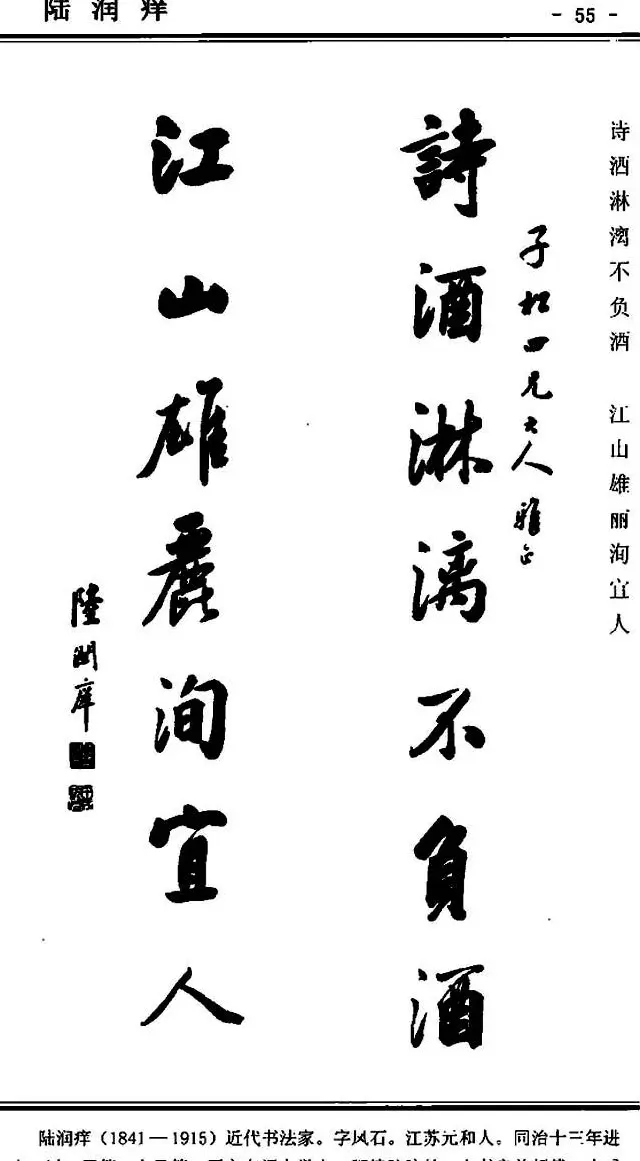 陆润痒 - 55 -
诗洒淋漓不负酒 江山雄丽洵宜人
子松四兄大人雅正
詩酒淋漓不負酒
江山雄麗洵宜人
陸潤庠
陆润痒（1841—1915）近代书法家。字凤石。江苏元和人。同治十三年进